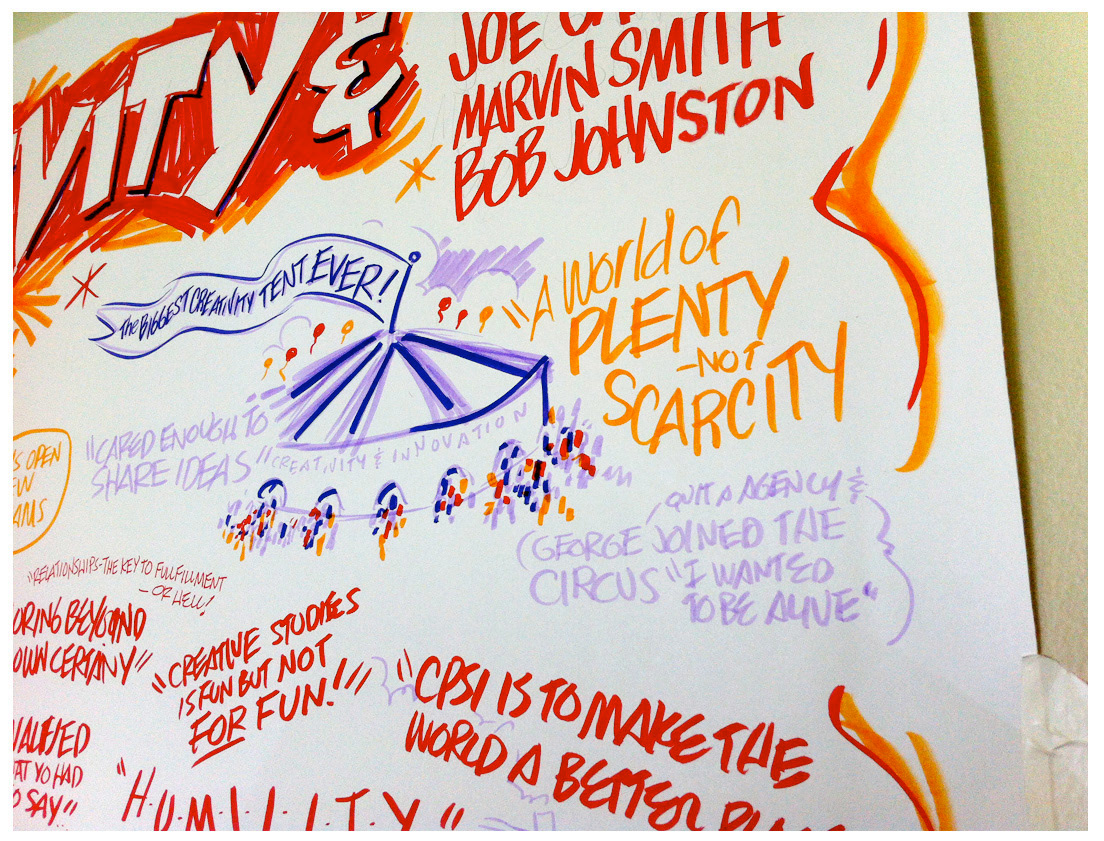 VITY &
JOE
MARVIN SMITH
BOB JOHNSTON
The BIGGEST CREATIVITY TENT EVER!
"A World of
PLENTY
-NOT
SCARCITY
"CARED ENOUGH TO
SHARE IDEAS"
CREATIVITY & INNOVATION
OPEN
QUIT A AGENCY &
(GEORGE JOINED THE
CIRCUS "I WANTED
TO BE ALIVE"
"RELATIONSHIPS-THE KEY TO FULFILLMENT
- OR HELL!
ORING BEYOND
OWN CERTAINY"
"CREATIVE STUDIES
IS FUN BUT NOT
FOR FUN!"
"CPSI IS TO MAKE THE
WORLD A BETTER
AT YO HAD
SAY"
"H.U.M.I.L.I.T.Y"